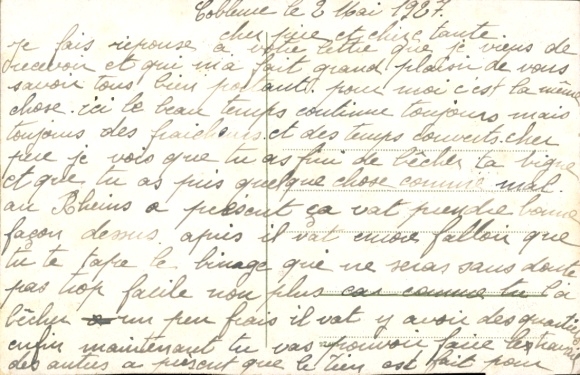 Coblence le 2 Mai 1927.
cher père et chère tante.
je fais réponse à votre lettre que je viens de
recevoir et qui m'a fait grand plaisir de vous
savoir tous bien portant. pour moi c'est la même
chose. ici le beau temps continue toujours mais
toujours des fraicheurs et des temps couverts. cher
père je vois que tu as fini de bêcher ta vigne
et que tu as pris quelque chose comme mal
au Rheins a présent ça vat prendre bonne
façon dessus après il vat encore falloir que
tu te tape le binage qui ne seras sans doute
pas trop facile non plus car comme tu l'a
bêcher un peu frais il vat y avoir des quartiers
enfin maintenant tu vas pouvoir faire les travaux
des autres a présent que le tien est fait pour